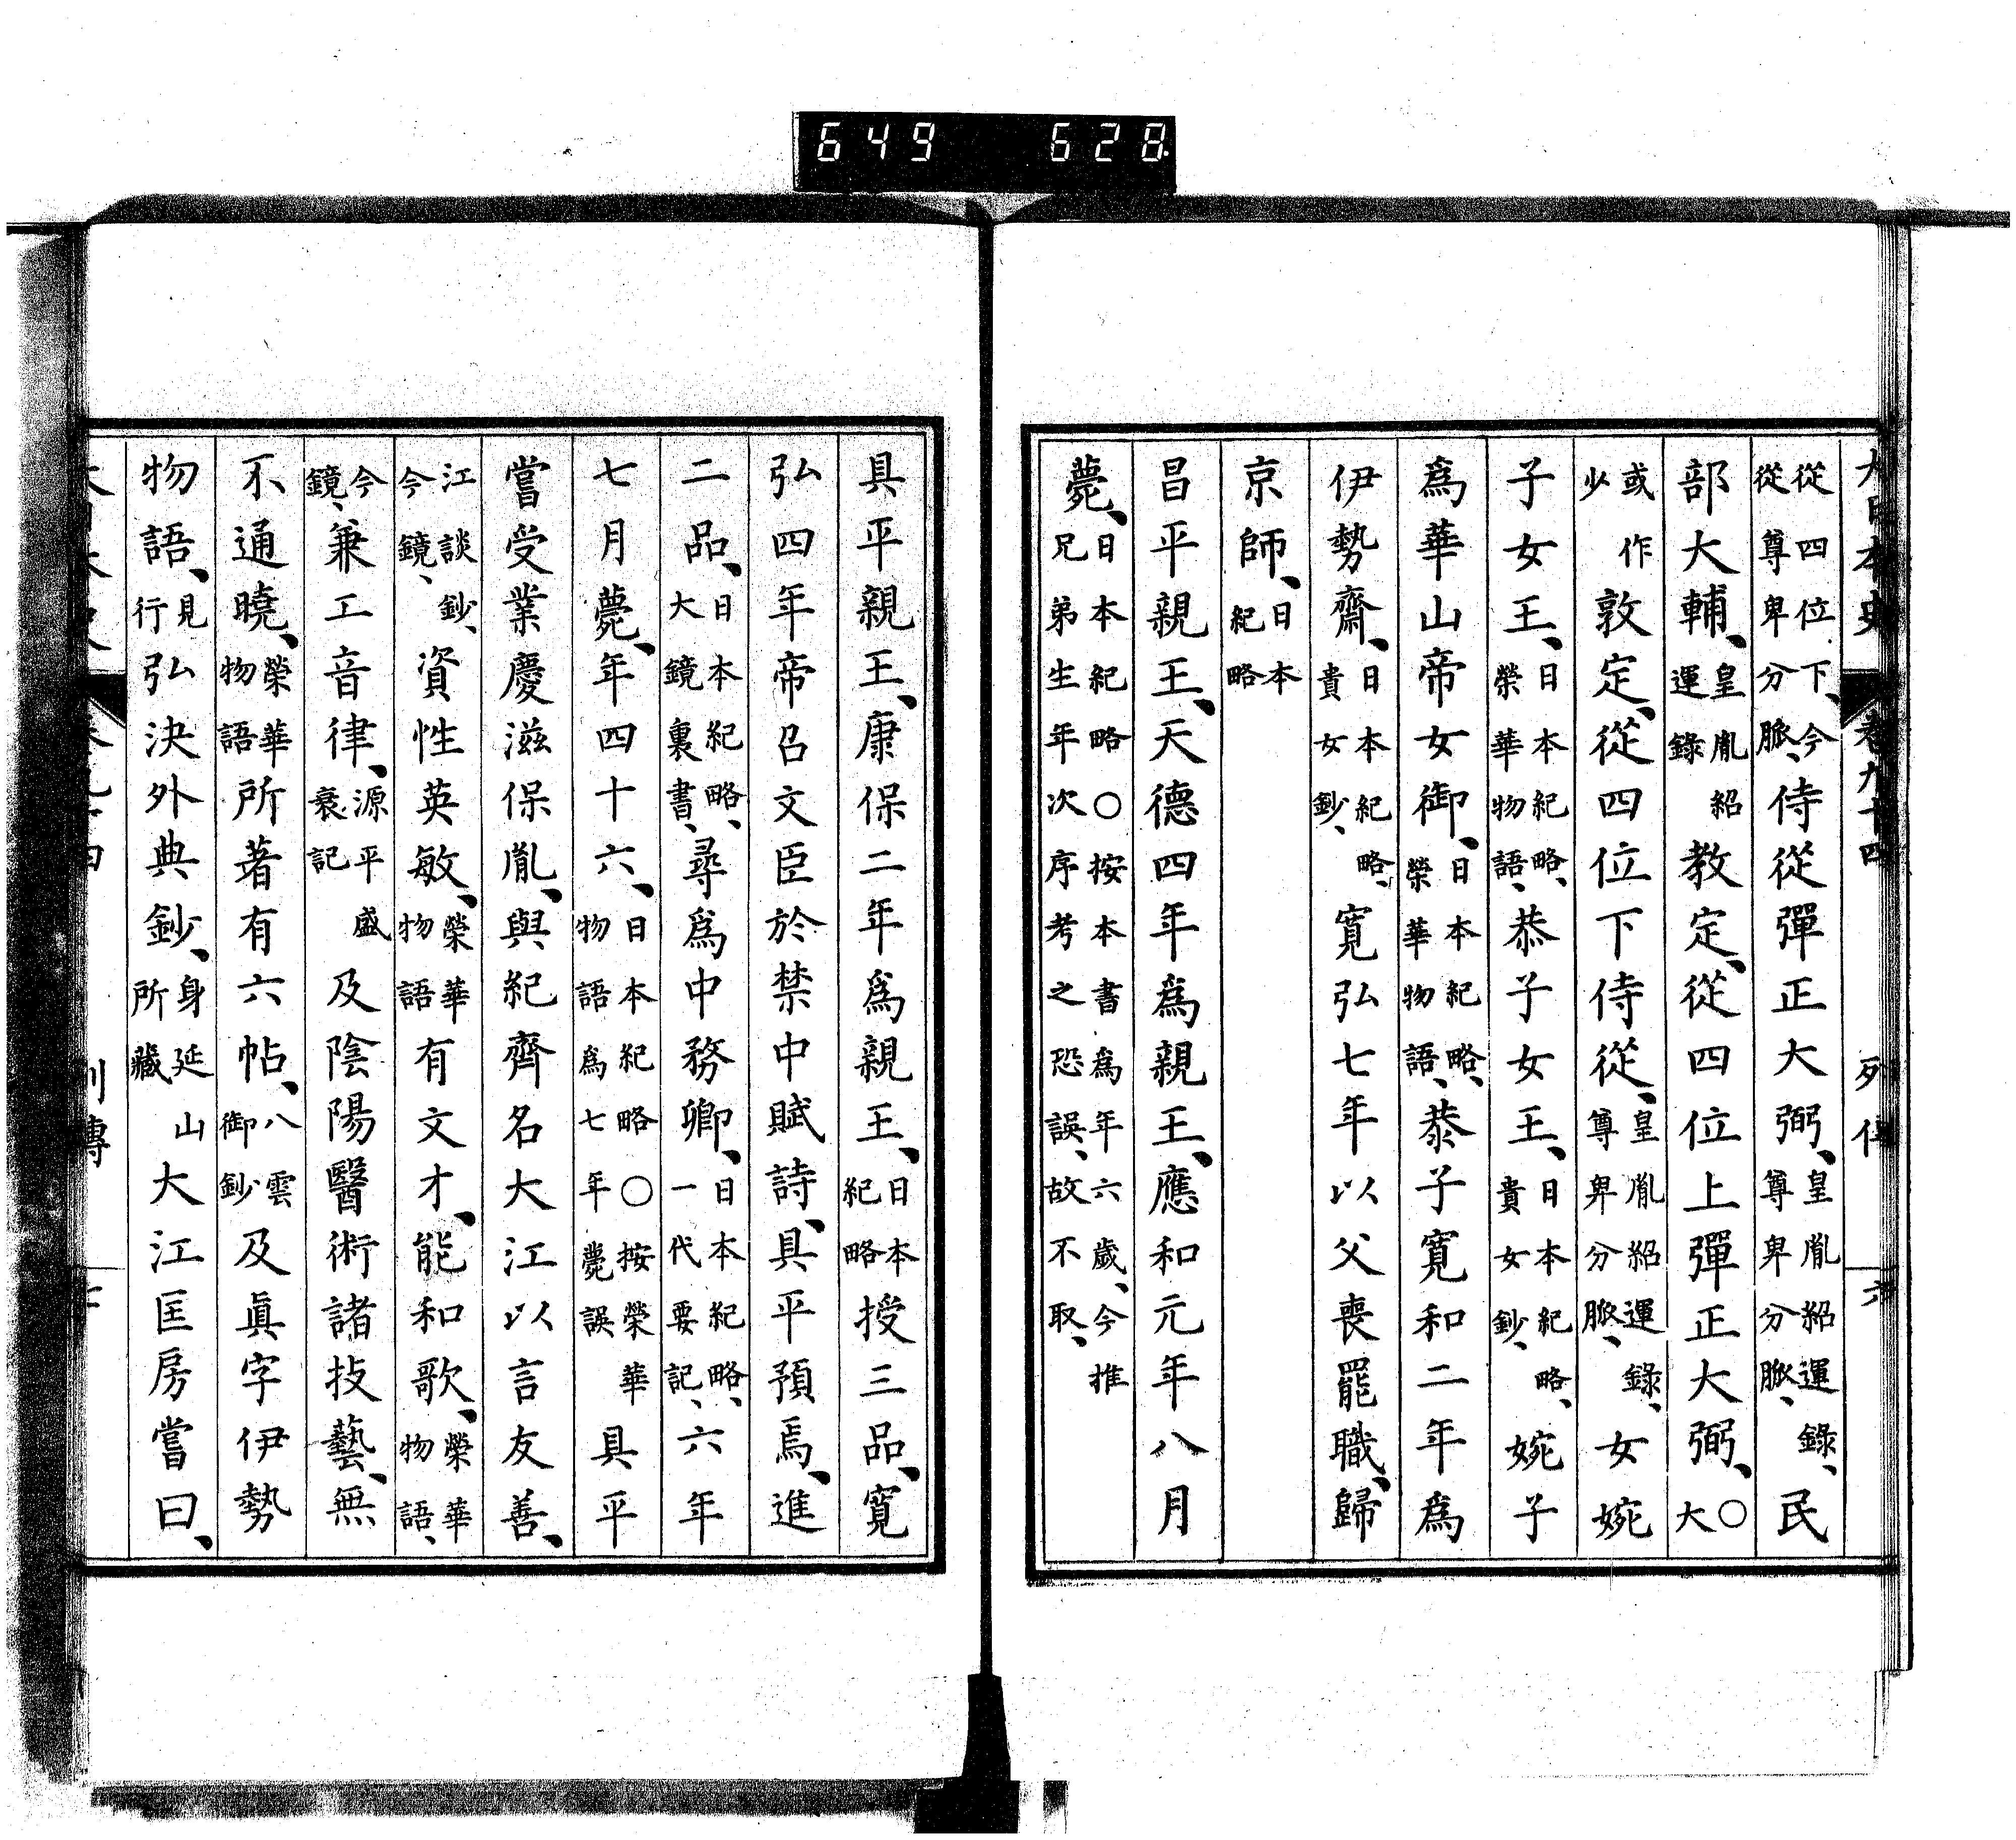 649 628
大日本史 卷九十四 列傳 六
從四位下、今從尊卑分脈、侍從彈正大弼、皇胤紹運錄、尊卑分脈、民
部大輔、皇胤紹運錄教定、從四位上彈正大弼、○大
或作少敦定、從四位下侍從、皇胤紹運錄、尊卑分脈、女婉
子女王、日本紀略、榮華物語、恭子女王、日本紀略、貴女鈔、婉子
爲華山帝女御、日本紀略、榮華物語、恭子寬和二年爲
伊勢齋、日本紀略、貴女鈔、寬弘七年以父喪罷職、歸
京師、日本紀略
昌平親王、天德四年爲親王、應和元年八月
薨、日本紀略○按本書爲年六歲、今推兄弟生年次序考之恐誤、故不取、
具平親王、康保二年爲親王、日本紀略授三品、寬
弘四年帝召文臣於禁中賦詩、具平預焉、進
二品、日本紀略、大鏡裏書、尋爲中務卿、日本紀略、一代要記、六年
七月薨、年四十六、日本紀略○按榮華物語爲七年薨誤具平
嘗受業慶滋保胤、與紀齊名大江以言友善、
江談鈔、今鏡、資性英敏、榮華物語有文才、能和歌、榮華物語、
今鏡、兼工音律、源平盛衰記及陰陽醫術諸技藝、無
不通曉、榮華物語所著有六帖、八雲御鈔及眞字伊勢
物語、見行弘決外典鈔、身延山所藏大江匡房嘗曰、